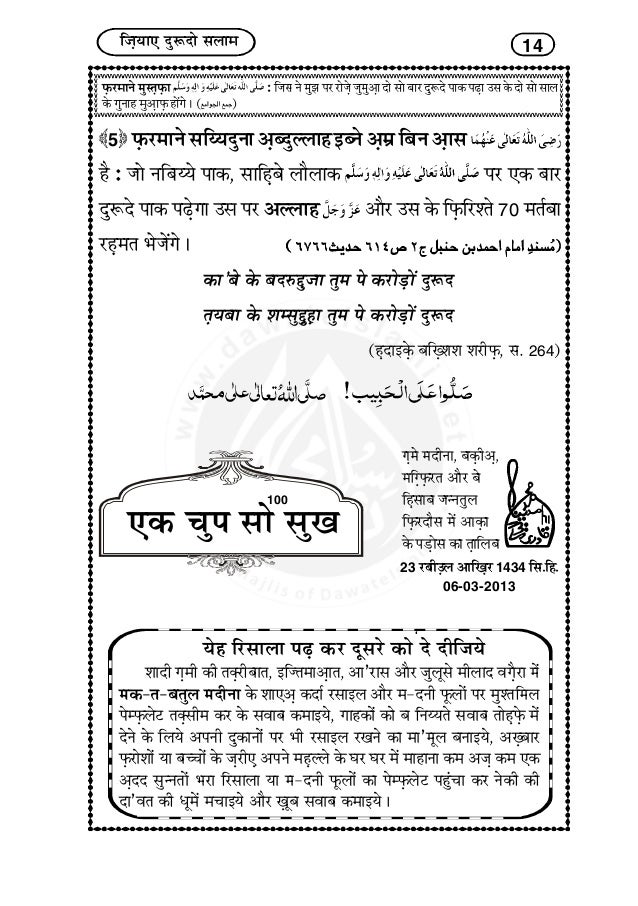 ज़ियाए दुरूदो सलाम
14
फ़रमाने मुस्त़फ़ा صَلَّى اللّٰهُ تَعَالٰى عَلَيْهِ وَاٰلِهٖ وَسَلَّم : जिस ने मुझ पर रोज़े जुमुआ़ दो सो बार दुरूदे पाक पढ़ा उस के दो सो साल
के गुनाह मुआ़फ़ होंगे । (جمع الجوامع)
﴾5﴿ फ़रमाने सय्यिदुना अ़ब्दुल्लाह इब्ने अ़म्र बिन आ़स رَضِىَ اللّٰهُ تَعَالٰى عَنْهُمَا
है : जो नबिय्ये पाक, साह़िबे लौलाक صَلَّى اللّٰهُ تَعَالٰى عَلَيْهِ وَاٰلِهٖ وَسَلَّم पर एक बार
दुरूदे पाक पढ़ेगा उस पर अल्लाह عَزَّوَجَلَّ और उस के फ़िरिश्ते 70 मर्तबा
रह़मत भेजेंगे । (مُسندِ امام احمد بن حنبل ج٢ ص٦١٤ حديث٦٧٦٦)
का'बे के बदरुद्दुजा तुम पे करोड़ों दुरूद
त़यबा के शम्सुद्दुह़ा तुम पे करोड़ों दुरूद
(ह़दाइके़ बख़्शिश शरीफ़, स. 264)
صَلُّوا عَلَى الْحَبِيب! صلَّى اللهُ تعالٰى علٰى محمَّد
ग़मे मदीना, बक़ीअ़,
मग़्फ़िरत और बे
ह़िसाब जन्नतुल
फ़िरदौस में आक़ा
के पड़ोस का त़ालिब
एक चुप सो 100 सुख
23 रबीउ़ल आख़िर 1434 सि.हि.
06-03-2013
येह रिसाला पढ़ कर दूसरे को दे दीजिये
शादी ग़मी की तक़्रीबात, इज्तिमाआ़त, आ'रास और जुलूसे मीलाद वग़ैरा में
मक-त-बतुल मदीना के शाएअ़ कर्दा रसाइल और म-दनी फूलों पर मुश्तमिल
पेम्फ़लेट तक़्सीम कर के सवाब कमाइये, गाहकों को ब निय्यते सवाब तोह़फ़े में
देने के लिये अपनी दुकानों पर भी रसाइल रखने का मा'मूल बनाइये, अख़्बार
फ़रोशों या बच्चों के ज़रीए़ अपने मह़ल्ले के घर घर में माहाना कम अज़ कम एक
अ़दद सुन्नतों भरा रिसाला या म-दनी फूलों का पेम्फ़लेट पहुंचा कर नेकी की
दा'वत की धूमें मचाइये और ख़ूब सवाब कमाइये ।